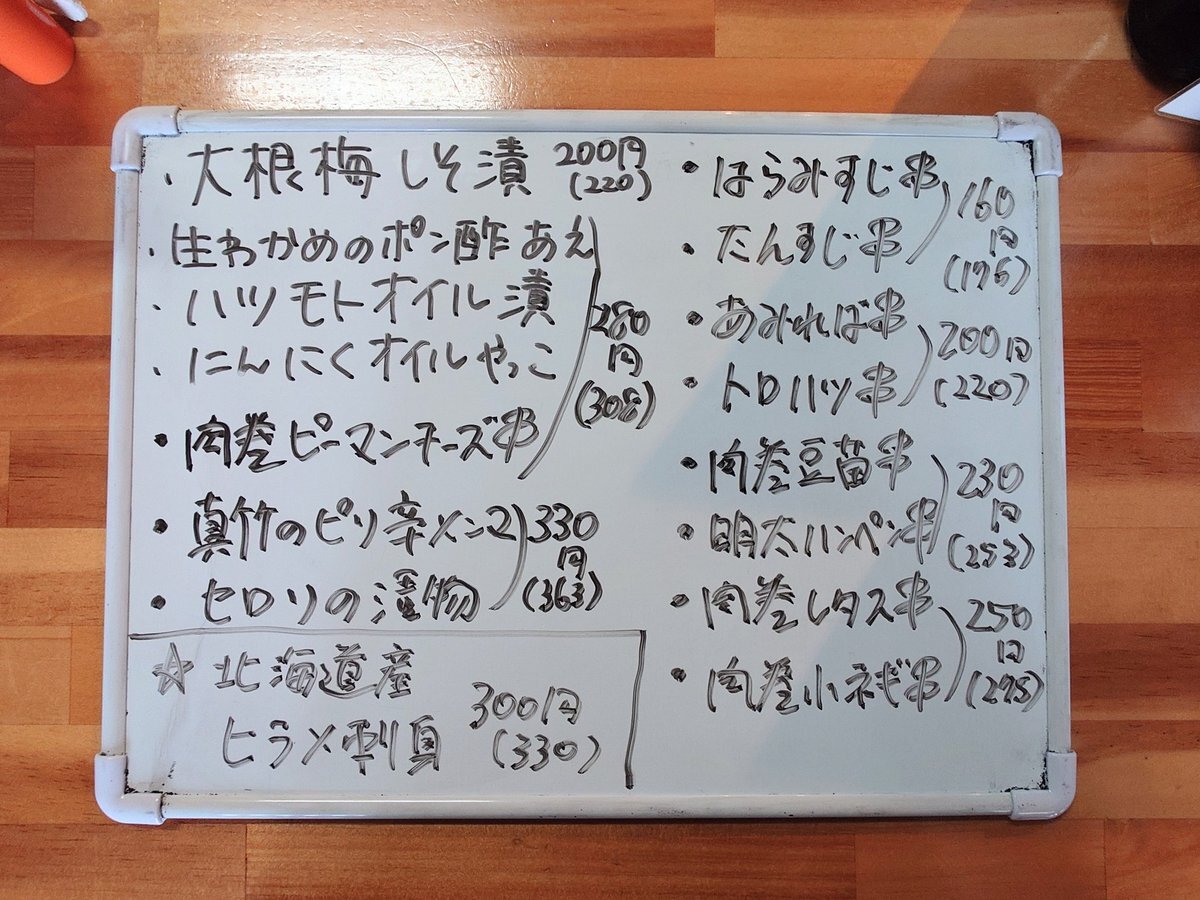 ・大根梅しそ漬 200円
(220)
・生わかめのポン酢あえ
・ハツモトオイル漬
・にんにくオイルやっこ
・肉巻ピーマンチーズ串
280
円
(308)
・真竹のピリ辛メンマ
・セロリの漬物
330
円
(363)
☆北海道産
ヒラメ刺身
300円
(330)
・はらみすじ串
・たんすじ串
160
円
(176)
・あみればば串
・トロハツ串
200円
(220)
・肉巻豆苗串
・明太ハンペン串
230
円
(253)
・肉巻レタス串
・肉巻小ネギ串
250
円
(275)